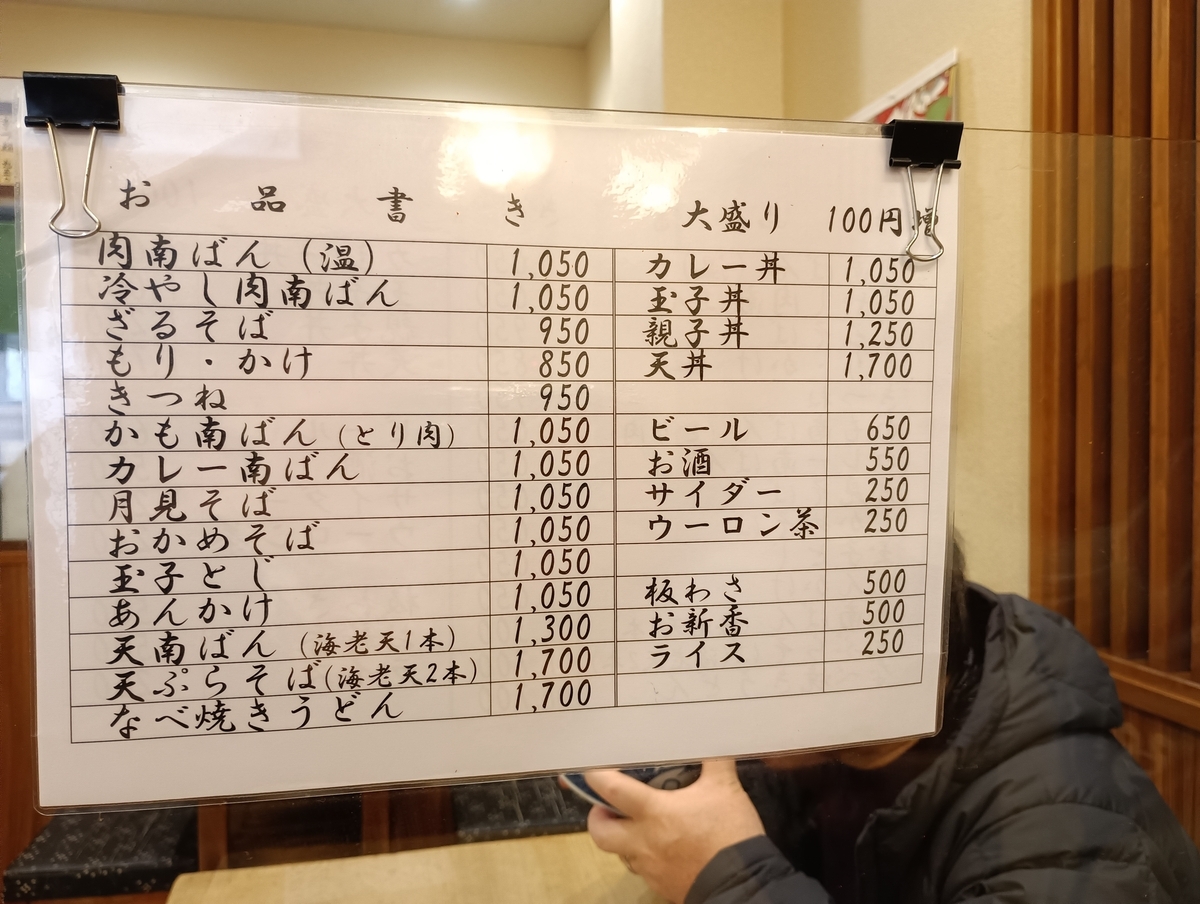 お品書き
大盛り 100円増
肉南ばん（温） 1,050
冷やし肉南ばん 1,050
ざるそば 950
もり・かけ 850
きつね 950
かも南ばん（とり肉） 1,050
カレー南ばん 1,050
月見そば 1,050
おかめそば 1,050
玉子とじ 1,050
あんかけ 1,050
天南ばん（海老天1本） 1,300
天ぷらそば（海老天2本） 1,700
なべ焼きうどん 1,700
カレー丼 1,050
玉子丼 1,050
親子丼 1,250
天丼 1,700
ビール 650
お酒 550
サイダー 250
ウーロン茶 250
板わさ 500
お新香 500
ライス 250